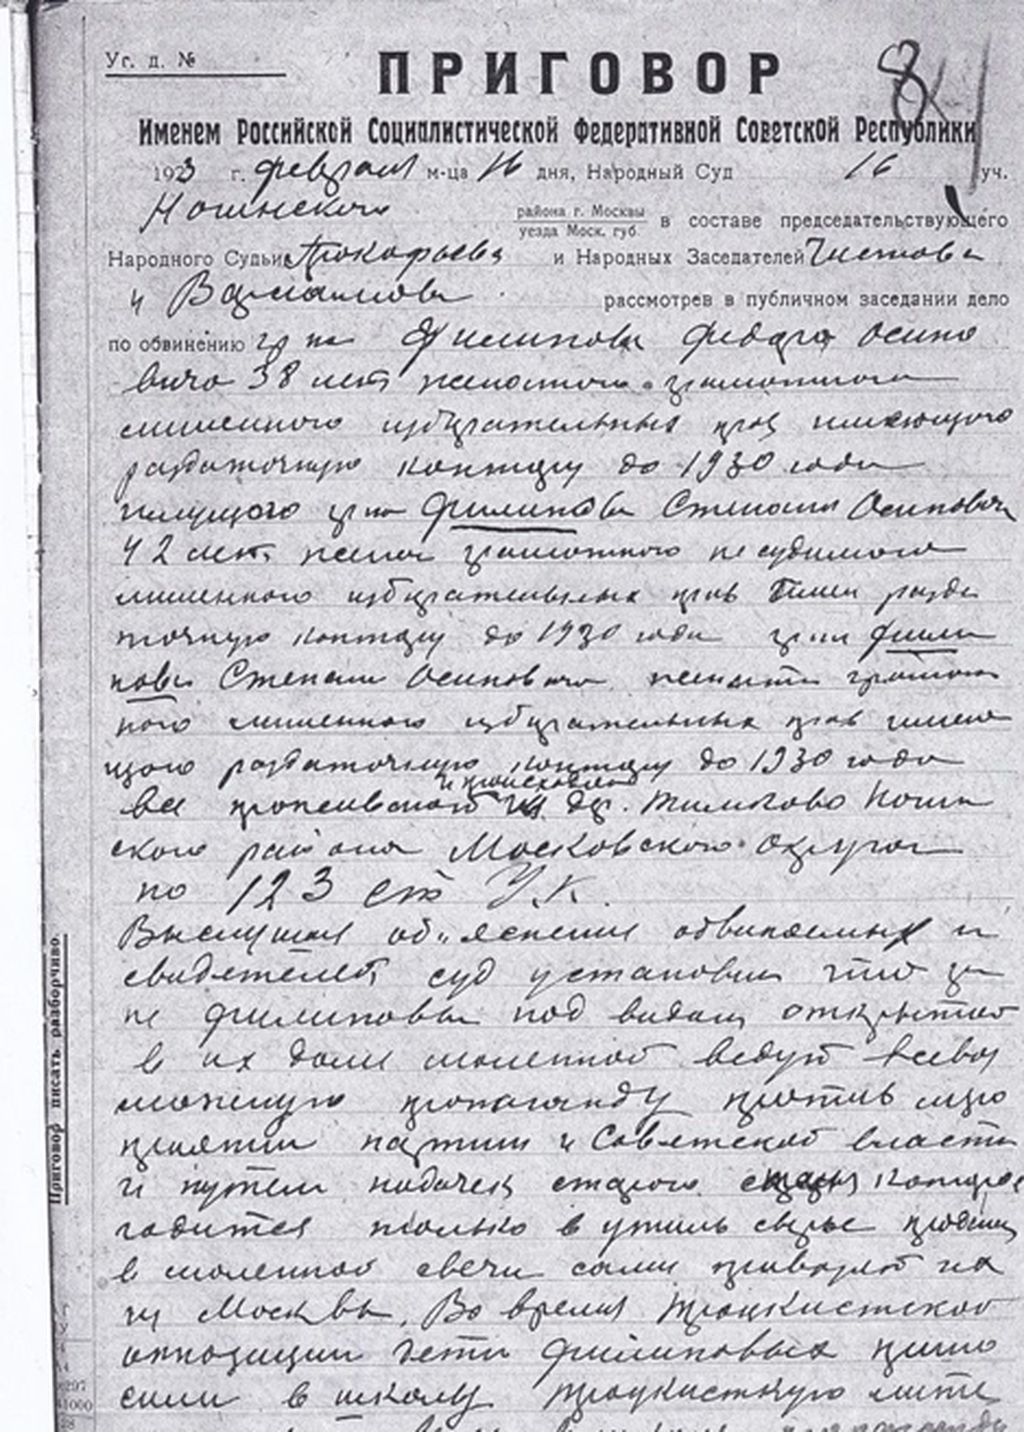 Уг. д. №
ПРИГОВОР
8
Именем Российской Социалистической Федеративной Советской Республики
1923 г. февраля м-ца 16 дня, Народный Суд 16 уч.
Ногинского района г. Москвы уезда Моск. губ. в составе председательствующего
Народного Судьи Прокофьева и Народных Заседателей Чистова
и рассмотрев в публичном заседании дело
по обвинению гр на Филипова Федора Осипо
вича 38 лет женатого грамотного
лишенного избирательных прав имеющего
раздаточную контору до 1930 года
гр на Филипова Степана Осиповича
42 лет женат грамотного не судимого
лишенного избирательных прав имел разда
точную контору до 1930 года гр на Фили
пова Степана Осиповича женат грамот
ного лишенного избирательных прав имею
щего раздаточную контору до 1930 года
все и происходящ дер. Тимково Ногин
ского района Московского Округа
по 123 ст У.К.
Выслушав об,,яснения обвиняемых и
свидетелей, суд установил что гр
не Филиповы под видом открытой
в их доме моленной ведут всевоз
можную пропаганду против меро
приятий партии и Советской власти
и путем подачек старого которое
годится только в утиль сырье
в моленной свечи сами их
из Москвы. Во время троцкистской
оппозиции дети Филиповых прино
сили в школу троцкистскую лите
Приговор писать разборчиво.